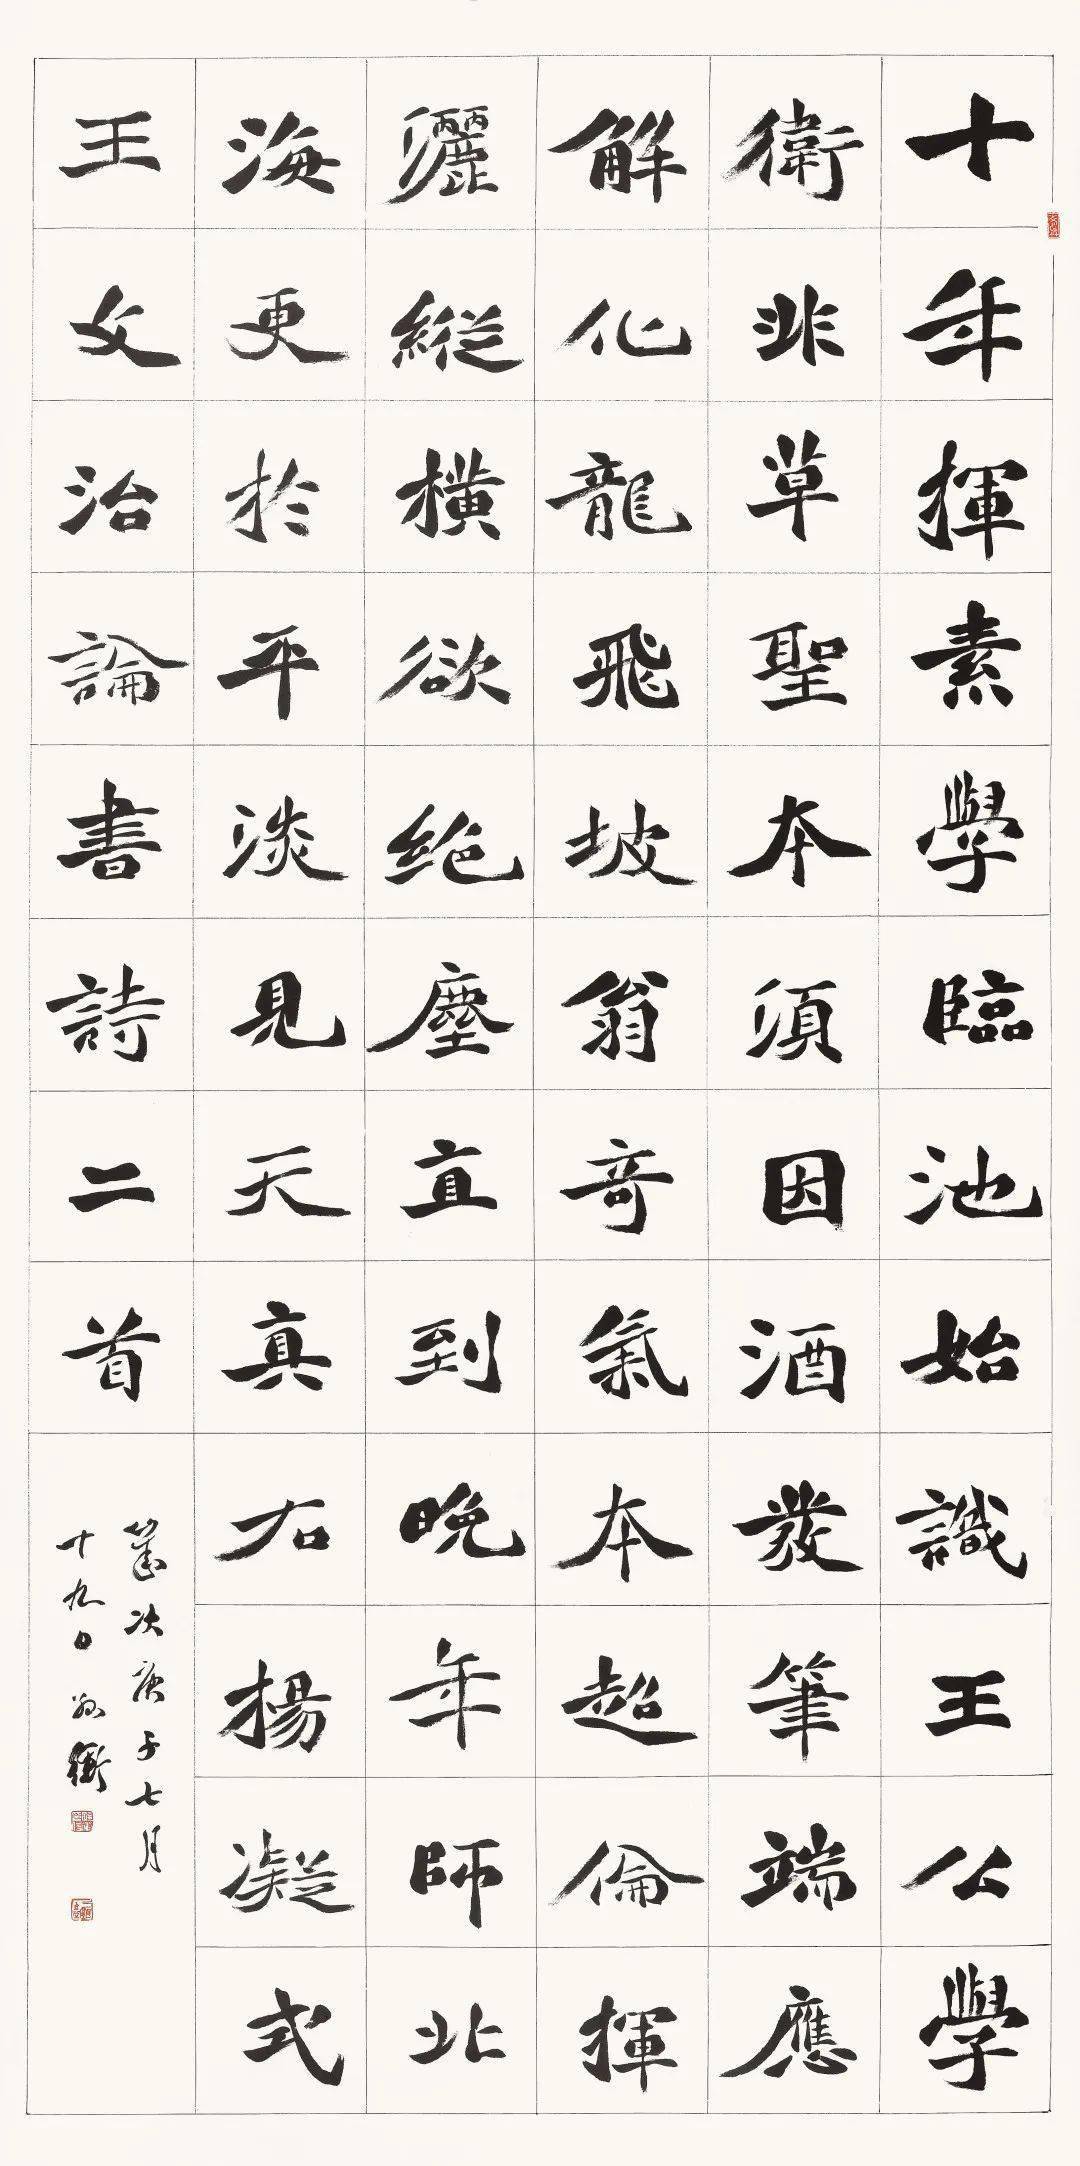 十年揮素學臨池始識王公學
衛非草聖本須因酒發筆端應
解化龍飛坡翁奇氣本超倫揮
灑縱橫欲絶塵直到晚年師北
海更於平淡見天真右揚凝式
王文治論書詩二首
歲次庚子七月
十九日